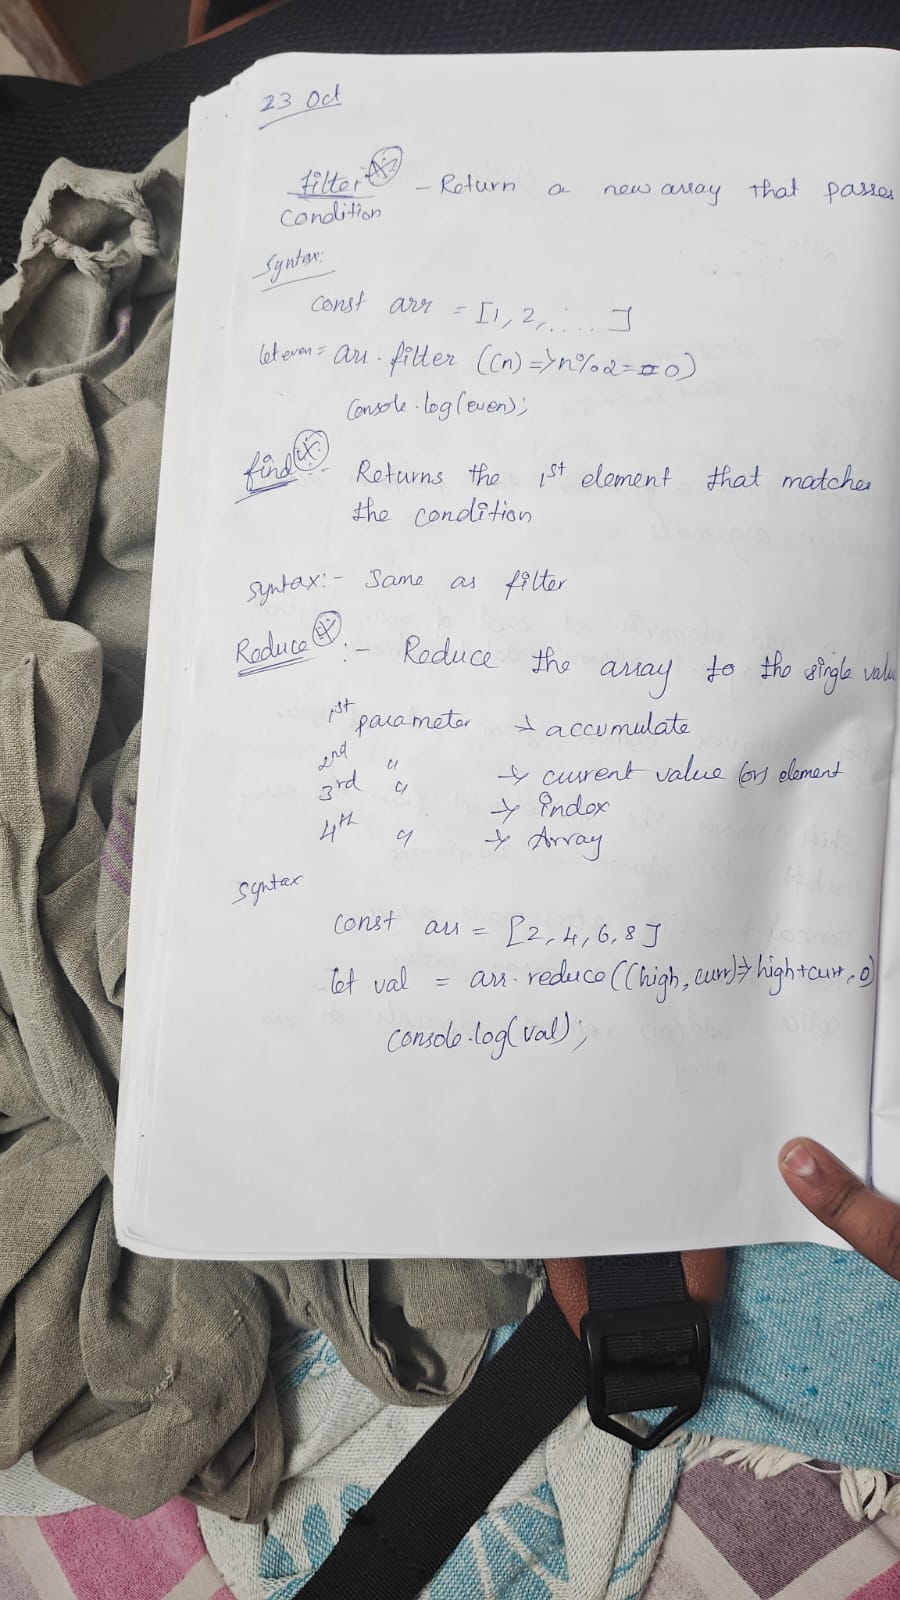 23 Oct
Filter - Return a new array that passes
Condition
Syntax:
const arr = [1, 2, .... ]
let even = arr.filter ((n) => n%2==0)
Console.log(even);
find :- Returns the 1st element that matches
the condition
Syntax:- Same as filter
Reduce :- Reduce the array to the single value
1st parameter → accumulate
2nd " → current value (or) element
3rd " → index
4th " → Array
Syntax
const arr = [2, 4, 6, 8]
let val = arr.reduce((high, curr)=>high+curr, 0)
console.log(val);